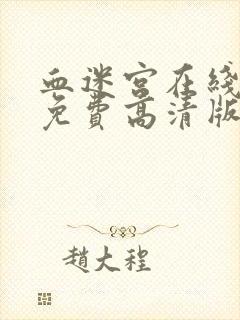 血迷宫在线
免费高清版
趙大程